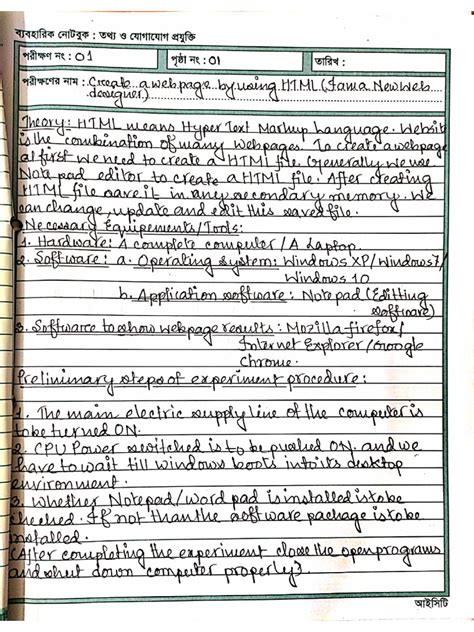 ব্যবহারিক নোটবুক : তথ্য ও যোগাযোগ প্রযুক্তি
পরীক্ষণ নং : 01 পৃষ্ঠা নং : 01 তারিখ :
পরীক্ষণের নাম : Create a webpage by using HTML (I am a New Web
designer)
Theory: HTML means Hyper Text Markup Language. Website
is the combination of many webpages. To create a webpage
at first we need to create a HTML file. Generally we use
Note pad editor to create a HTML file. After creating
HTML file save it in any secondary memory. We
can change, update and edit this saved file.
Necessary Equipements/Tools:
1. Hardware: A complete computer / A Laptop.
2. Software: a. Operating system: Windows XP/Windows7/
Windows 10
b. Application software: Note pad (Editting
software)
3. Software to show webpage results: Mozilla-firefox/
Internet Explorer / Google
Chrome.
Preliminary steps of experiment procedure:
1. The main electric supply line of the computer is
to be turned ON.
2. CPU Power switched is to be pushed ON. and we
have to wait till windows boots into its desktop
environment.
3. Whether Notepad/word pad is installed is to be
checked. If not than the software package is to be
installed.
(After completing the experiment close the open programs
and shut down computer properly).
আইসিটি